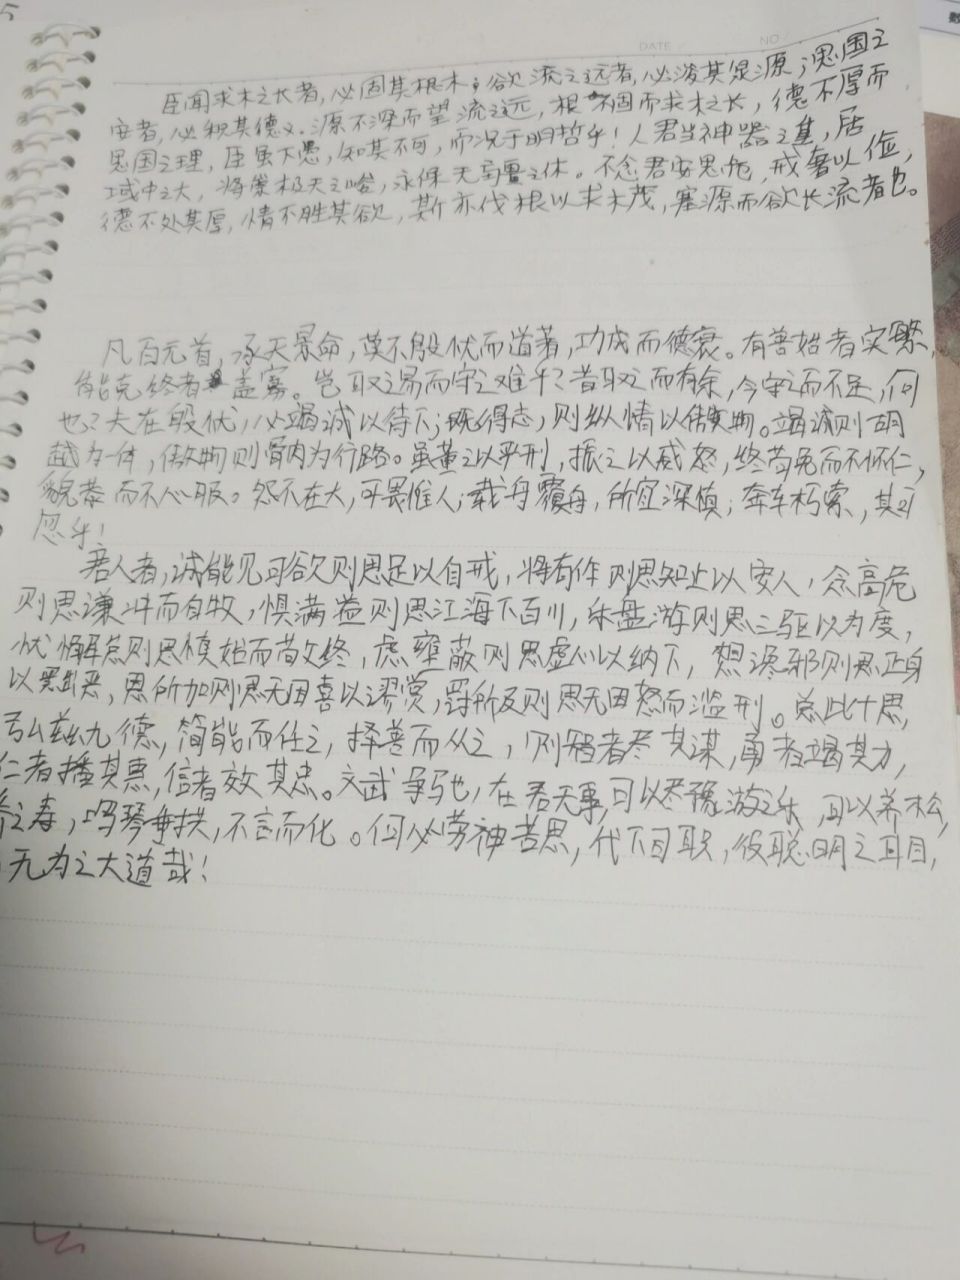 5
DATE NO
数
臣闻求木之长者,必固其根本;欲流之远者,必浚其泉源;思国之
安者,必积其德义。源不深而望流之远,根不固而求木之长,德不厚而
思国之理,臣虽下愚,知其不可,而况于明哲乎!人君当神器之重,居
域中之大,将崇极天之峻,永保无疆之休。不念君安思危,戒奢以俭,
德不处其厚,情不胜其欲,斯亦伐根以求木茂,塞源而欲长流者也。
凡百元首,承天景命,莫不殷忧而道著,功成而德衰。有善始者实繁,
能克终者盖寡。岂取之易而守之难乎?昔取之而有余,今守之而不足,何
也?夫在殷忧,必竭诚以待下;既得志,则纵情以傲物。竭诚则胡
越为一体,傲物则骨肉为行路。虽董之以严刑,振之以威怒,终苟免而不怀仁,
貌恭而不心服。怨不在大,可畏惟人;载舟覆舟,所宜深慎;奔车朽索,其可
忽乎!
君人者,诚能见可欲则思足以自戒,将有作则思知止以安人,念高危
则思谦冲而自牧,惧满溢则思江海下百川,乐盘游则思三驱以为度,
忧懈怠则思慎始而敬终,虑壅蔽则思虚心以纳下,想谗邪则思正身
以黜恶,恩所加则思无因喜以谬赏,罚所及则思无因怒而滥刑。总此十思,
弘兹九德,简能而任之,择善而从之,则智者尽其谋,勇者竭其力,
仁者播其惠,信者效其忠。文武争驰,在君无事,可以尽豫游之乐,可以养松,
乔之寿,鸣琴垂拱,不言而化。何必劳神苦思,代下司职,役聪明之耳目,
无为之大道哉!